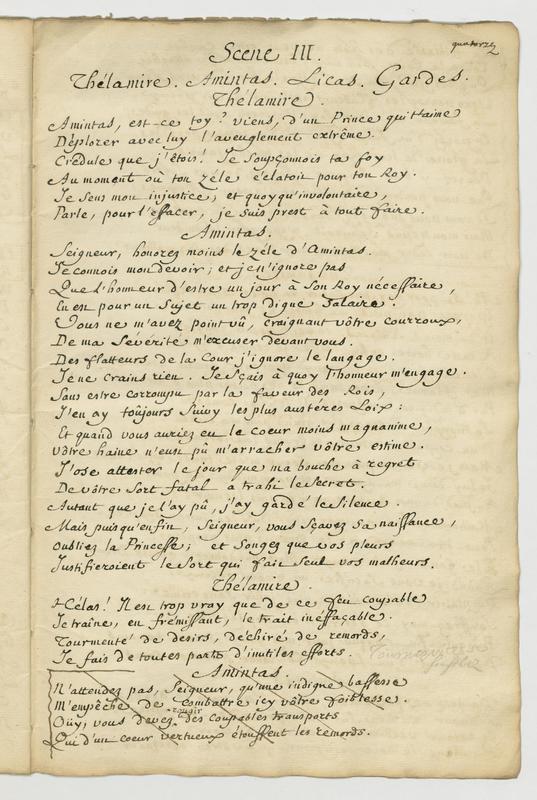 quatorze
Scene III.
Thélamire. Amintas. Licas. Gardes.
Thélamire.
Amintas, est-ce toy? viens, d'un Prince qui t'aime
Déplorer avec luy l'aveuglement extrême.
Crédule que j'étois! Je soupçonnois ta foy
Au moment où ton zéle éclatoit pour ton Roy.
Je sens mon injustice; et quoyqu'involontaire,
Parle, pour l'effacer, je suis prest à tout faire.
Amintas.
Seigneur, honorez moins le zéle d'Amintas.
Je connois mon devoir; et je n'ignore pas
Que l'honneur d'estre un jour à son Roy nécessaire,
En est pour un Sujet un trop digne Salaire.
Vous ne m'avez point vû, craignant vôtre courroux,
De ma Sévérité m'excuser devant vous.
Des flatteurs de la Cour j'ignore le langage.
Je ne crains rien. Je sçais à quoy l'honneur m'engage.
Sans estre corrompu par la faveur des Rois,
J'en ay toûjours suivy les plus austeres Loix:
Et quand vous auriez eu le coeur moins magnanime,
vôtre haine n'eust pû m'arracher vôtre estime.
J'ose attester le jour que ma bouche à regret
De vôtre Sort fatal a trahi le Secret.
Autant que je l'ay pû, j'ay gardé le Silence.
Mais puisqu'enfin, Seigneur, vous sçavez sa naissance,
oubliez la Princesse; et Songez que vos pleurs
Justifieroient le Sort qui fait seul vos malheurs.
Thélamire.
Hélas! Il est trop vray que de ce feu coupable
Je traîne, en frémissant, le trait inéffaçable.
Tourmenté de desirs, déchiré de remords,
Je fais de toutes parts d'inutiles efforts.
Amintas.
N'attendez pas, Seigneur, qu'une indigne bassesse
M'empêche de combattre icy vôtre foiblesse.
rougir
Oüy, vous devez des coupables transports
Qui d'un coeur vertueux étouffent les remords.